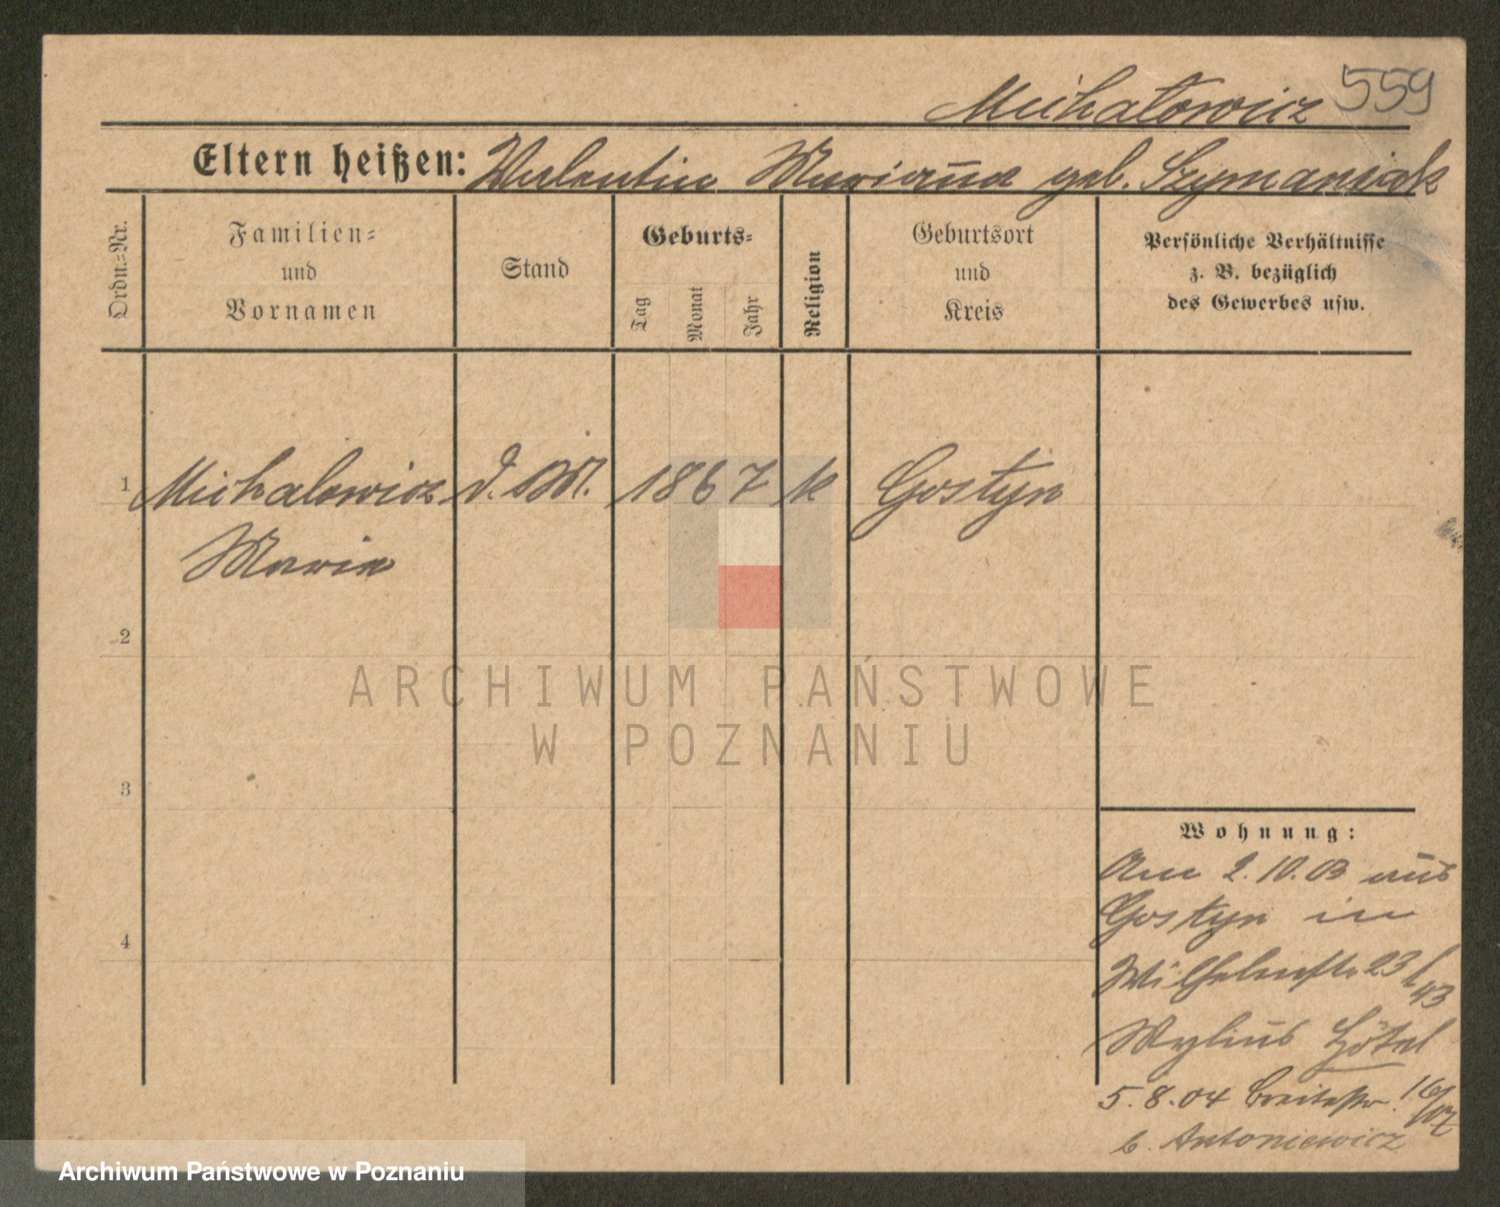 559
Michałowicz
Eltern heißen: Valentin Marianna geb. Szymaniak
Ordn.-Nr.
Familien-
und
Vornamen
Stand
Geburts-
Tag
Monat
Jahr
Religion
Geburtsort
und
Kreis
Persönliche Verhältnisse
z. B. bezüglich
des Gewerbes usw.
1 Michalowicz d. M. 1867 k Gostyn
Maria
2
3
4
Wohnung:
Am 2.10.03 aus
Gostyn in
Wilhelmstr 23
43
Mylius Hôtel
5.8.04 Breitestr. 16/
b. Antoniewicz
ARCHIWUM PAŃSTWOWE
W POZNANIU
Archiwum Państwowe w Poznaniu